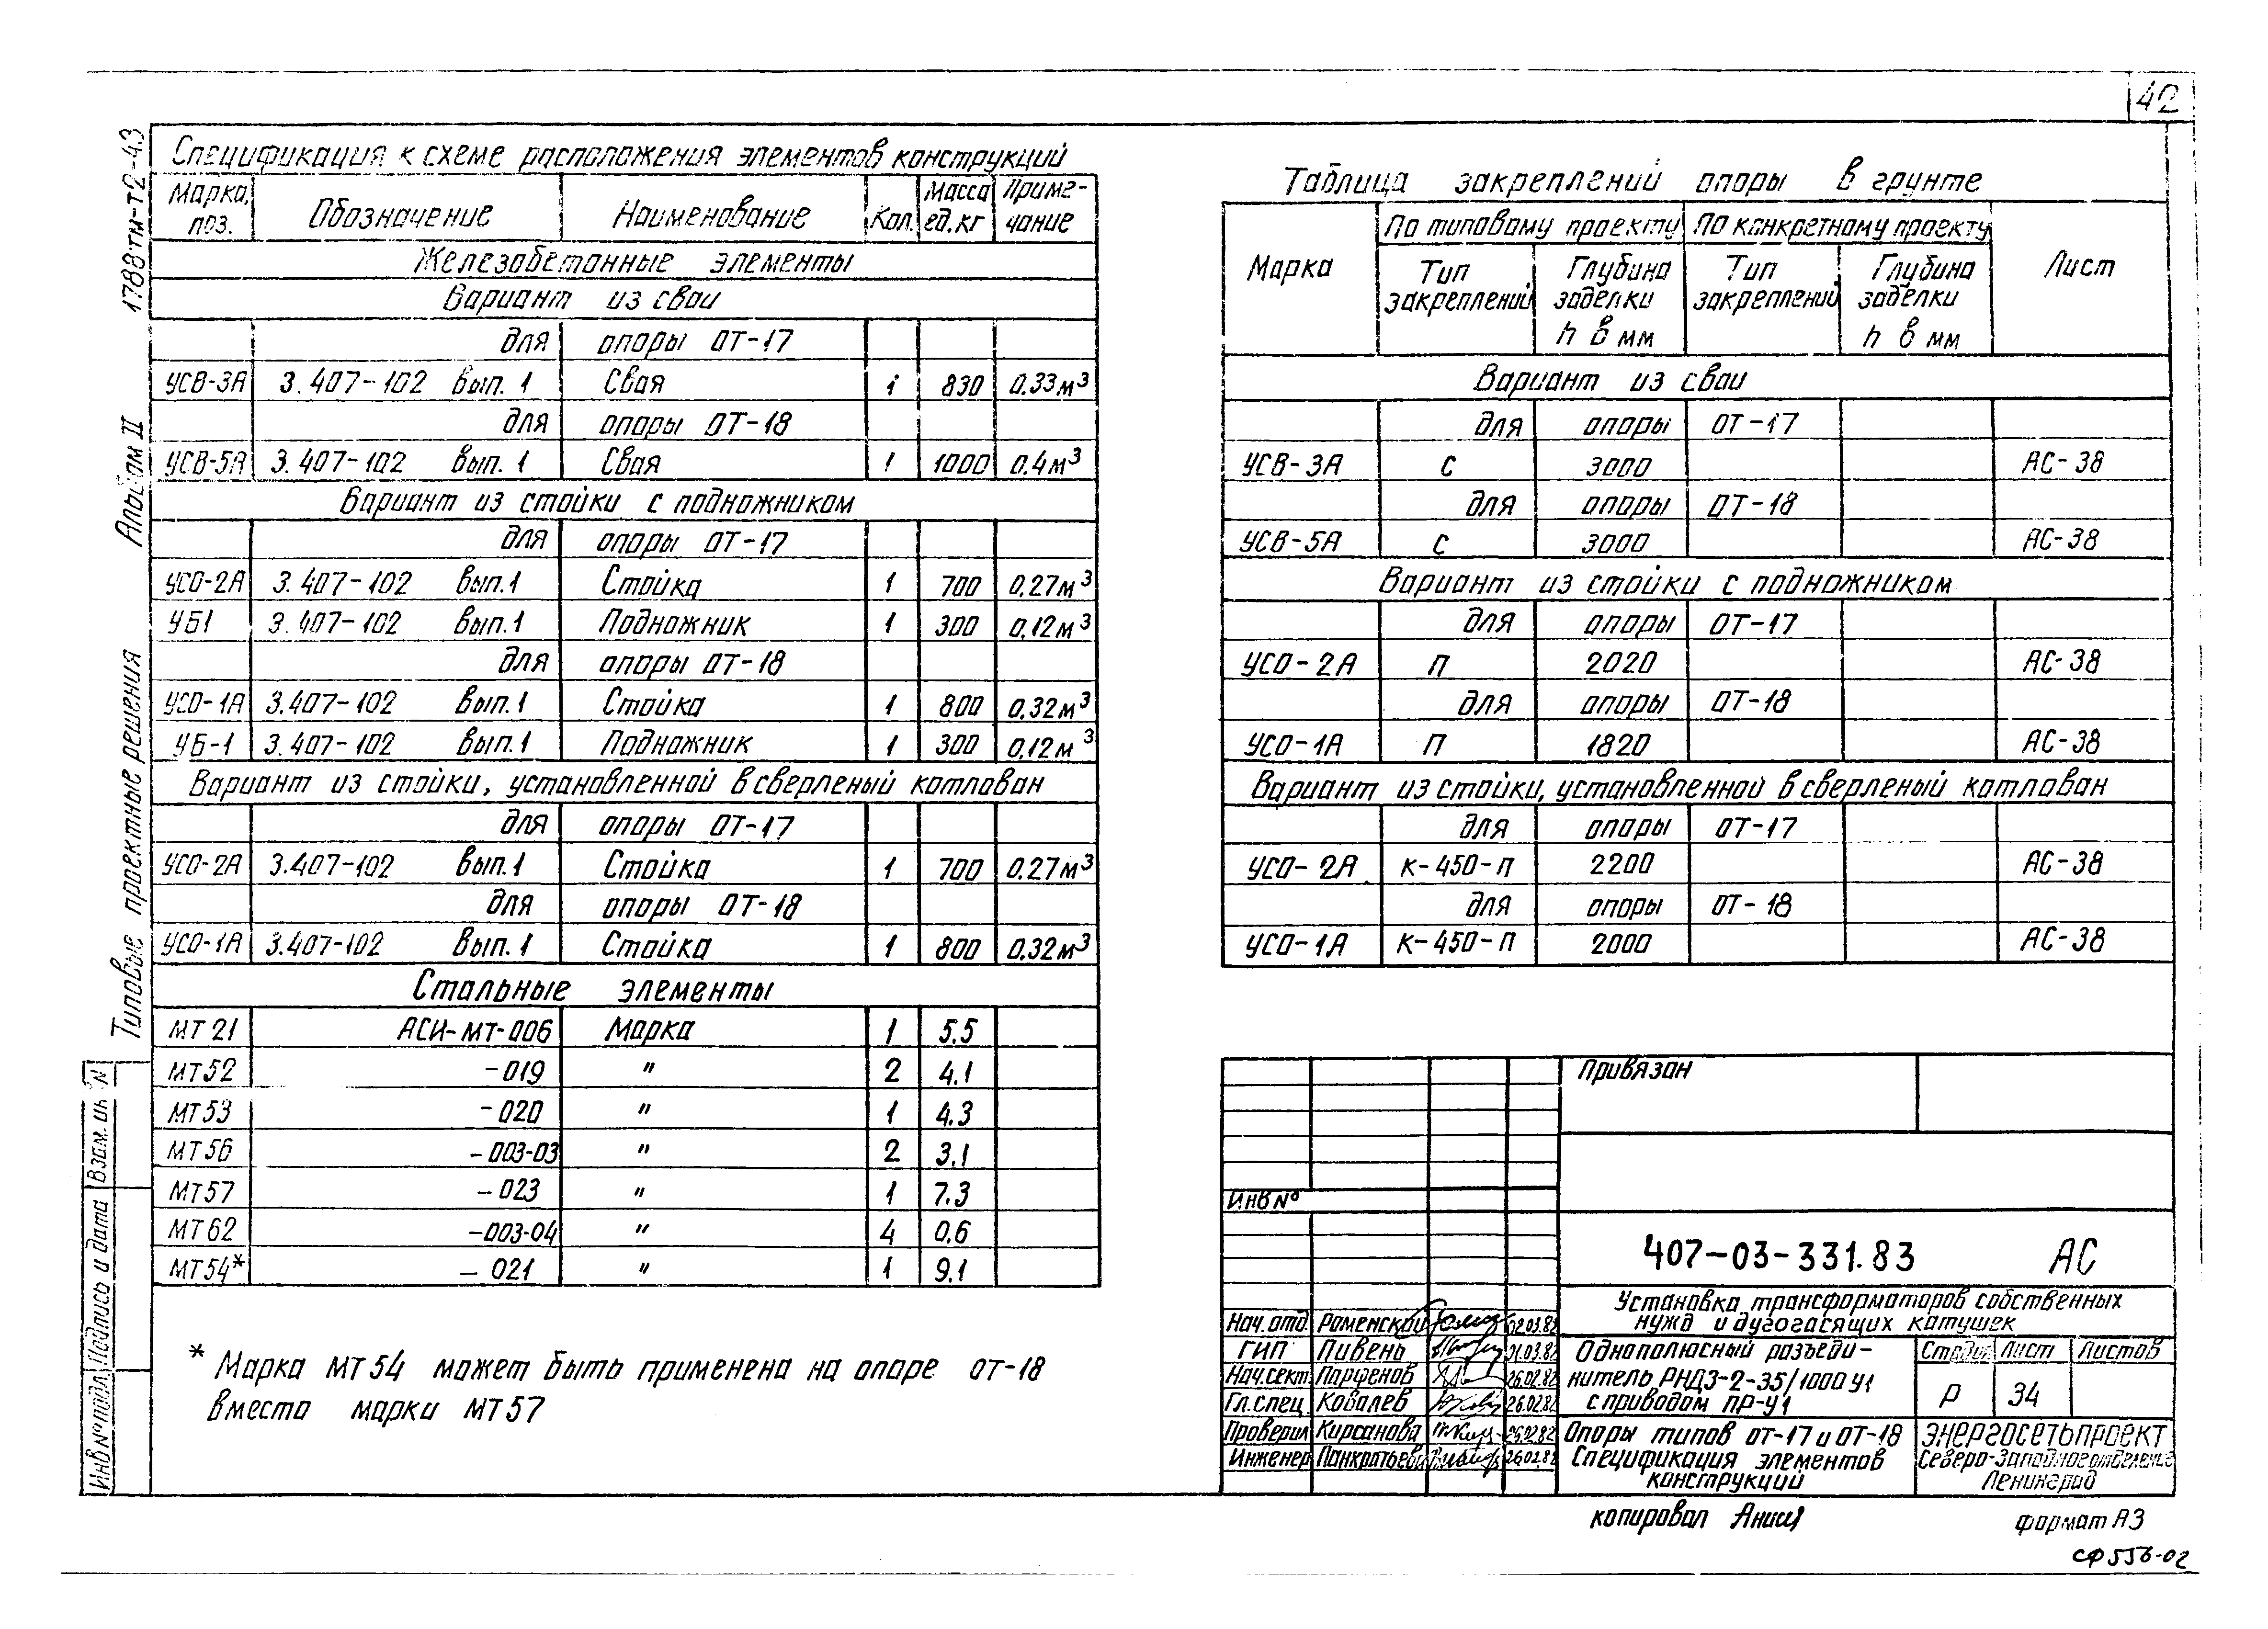 42
1788тм-т2-43
Альбом II
Типовые проектные решения
Взам. ин N
Подпись и дата
Инв N° подл
Спецификация к схеме расположения элементов конструкций
Марка, поз. Обозначение Наименование Кол. Масса ед.кг Приме-чание
Железобетонные элементы
Вариант из сваи
для опоры ОТ-17
УСВ-3А 3.407-102 вып. 1 Свая 1 830 0.33м³
для опоры ОТ-18
УСВ-5А 3.407-102 вып. 1 Свая 1 1000 0.4м³
Вариант из стойки с подножником
для опоры ОТ-17
УСО-2А 3.407-102 вып.1 Стойка 1 700 0.27м³
УБ1 3.407-102 вып.1 Подножник 1 300 0,12м³
для опоры ОТ-18
УСО-1А 3.407-102 вып.1 Стойка 1 800 0,32м³
УБ-1 3.407-102 вып.1 Подножник 1 300 0,12м³
Вариант из стойки, установленной в сверленый котлован
для опоры ОТ-17
УСО-2А 3.407-102 вып.1 Стойка 1 700 0.27м³
для опоры ОТ-18
УСО-1А 3.407-102 вып.1 Стойка 1 800 0,32м³
Стальные элементы
МТ21 АСИ-МТ-006 Марка 1 5.5
МТ52 -019 " 2 4.1
МТ53 -020 " 1 4.3
МТ56 -003-03 " 2 3.1
МТ57 -023 " 1 7.3
МТ62 -003-04 " 4 0.6
МТ54* -021 " 1 9.1
* Марка МТ54 может быть применена на опоре ОТ-18
вместо марки МТ57
Таблица закреплений опоры в грунте
Марка По типовому проекту По конкретному проекту Лист
Тип закреплений Глубина заделки h в мм Тип закреплений Глубина заделки h в мм
Вариант из сваи
для опоры ОТ-17
УСВ-3А С 3000 АС-38
для опоры ОТ-18
УСВ-5А С 3000 АС-38
Вариант из стойки с подножником
для опоры ОТ-17
УСО-2А П 2020 АС-38
для опоры ОТ-18
УСО-1А П 1820 АС-38
Вариант из стойки, установленной в сверленый котлован
для опоры ОТ-17
УСО-2А К-450-П 2200 АС-38
для опоры ОТ-18
УСО-1А К-450-П 2000 АС-38
Привязан
Инв N°
407-03-331.83 АС
Установка трансформаторов собственных
нужд и дугогасящих катушек
Нач. отд. Роменский 02.03.82
ГИП Пивень 01.03.82
Нач. сект. Парфенов 26.02.82
Гл. спец. Ковалев 26.02.82
Проверил Кирсанова 26.02.82
Инженер Панкратьева 26.02.82
Однополюсный разъеди-
нитель РНДЗ-2-35/1000 У1
с приводом ПР-У1
Стадия Лист Листов
Р 34
Опоры типов ОТ-17 и ОТ-18
Спецификация элементов
конструкций
ЭНЕРГОСЕТЬПРОЕКТ
Северо-Западное отделение
Ленинград
копировал
формат А3
СФ 556-02